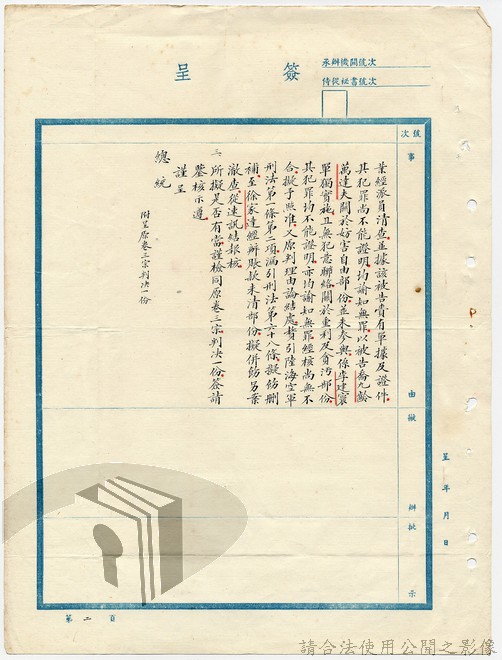 簽呈
承辦機關號次
侍從祕書號次
號次
事由
擬辦
批示
呈 年 月 日
業經派員清查並據該被告賫有單據及證件
其犯罪尚不能證明均諭知無罪以被告喬九齡
萬達夫關於妨害自由部份並未參與係李建寰
單獨實施且無犯意聯絡關於重利及貪污部份
其犯罪均不能證明亦均諭知無罪經核尚無不
合擬予照准又原判理由論結處贅引陸海空軍
刑法第一條第二項漏引刑法第六十八條擬飭刪
補至徐家達經辦賬款未清部份擬併飭另案
澈查從速訊結報核
三、所擬是否有當謹檢同原卷三宗判決一份簽請
鑒核示遵
謹呈
總統
附呈原卷三宗判決一份
第二頁
請合法使用公開之影像